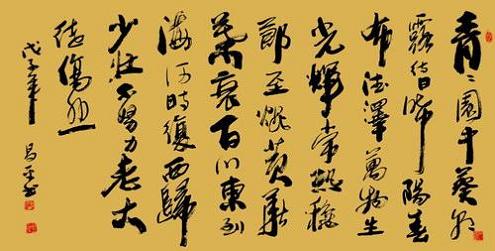 青〻園中葵朝
露待日晞陽春
布德澤萬物生
光輝常恐秋
節至焜黃華
葉衰百川東到
海何時復西歸
少壯不努力老大
徒傷悲
戊子年